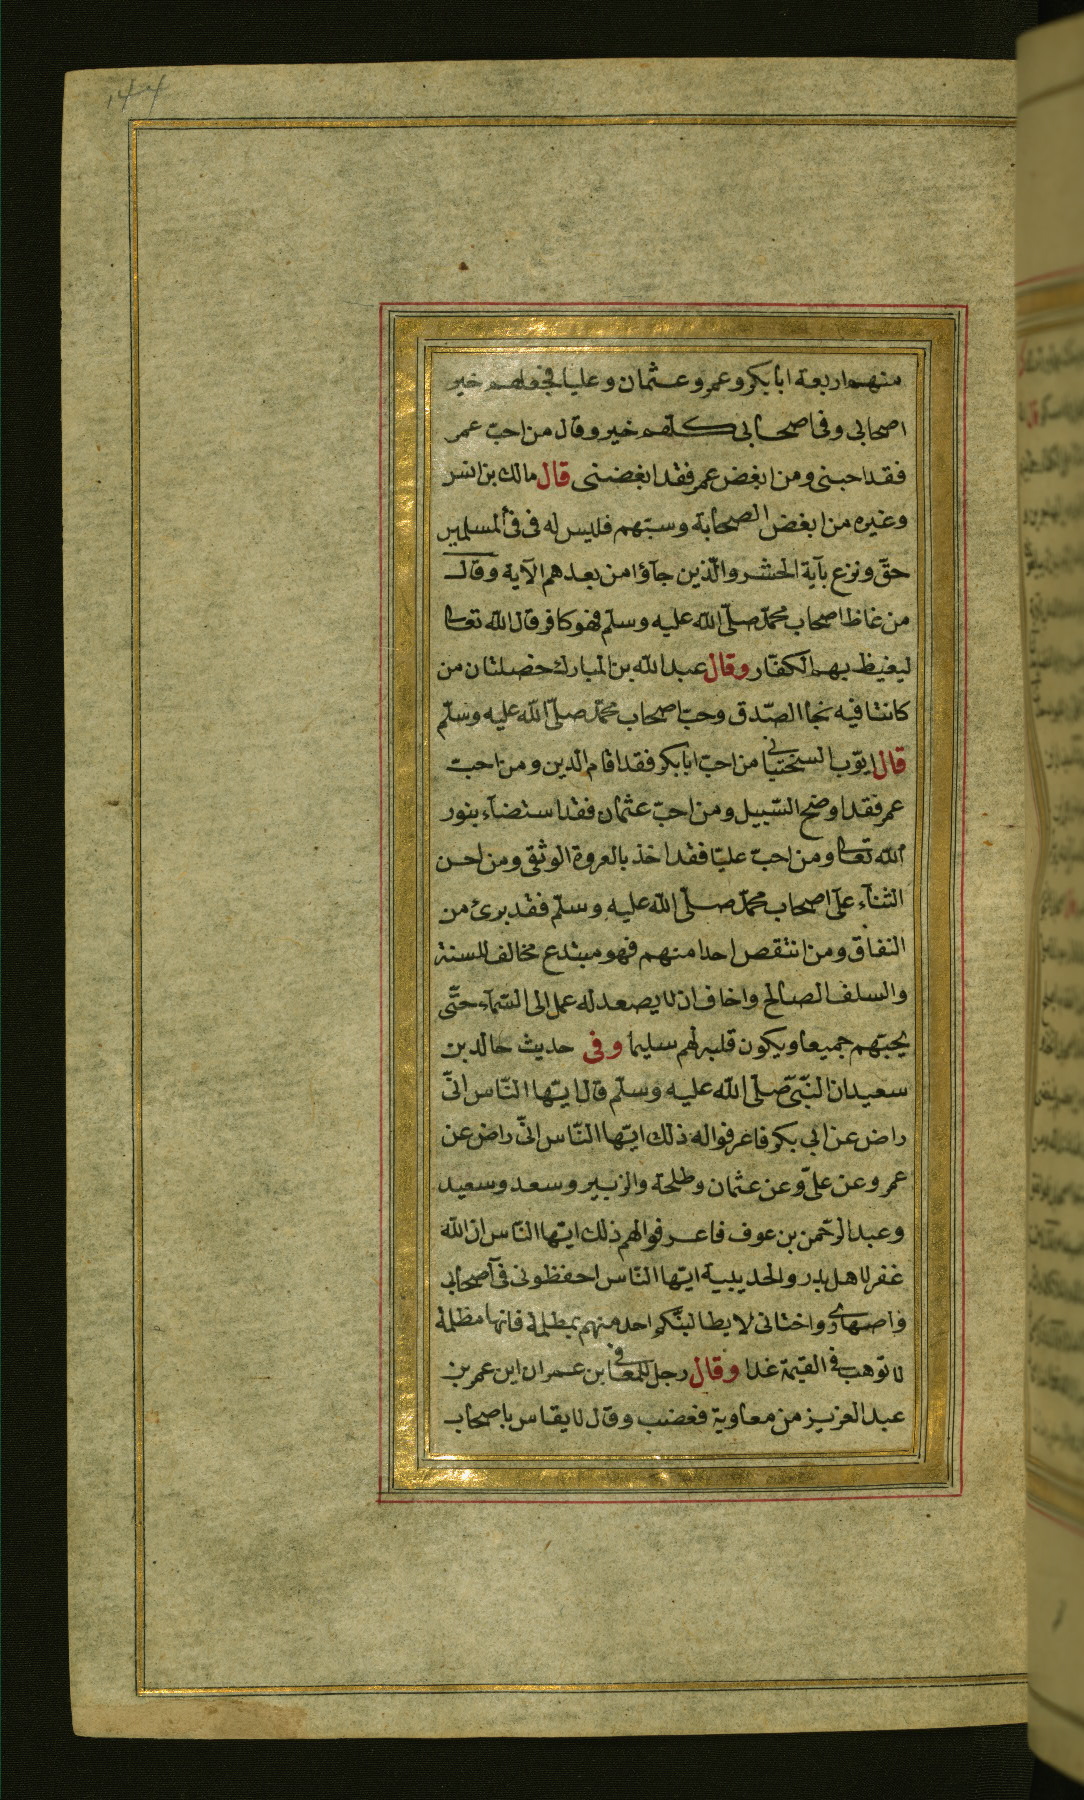 ۱۴۴
منهم اربعة ابا بكر و عمر و عثمان و عليا فجعلهم خير
اصحابى و فى اصحابى كلهم خير و قال من احبّ عمر
فقد احبنى و من ابغض عمر فقد ابغضنى قال مالك بن انس
و غيره من ابغض الصحابة و سبّهم فليس له فى فئ المسلمين
حقّ و نزع بآية الحشر و الّذين جآؤا من بعدهم الآية و قال
من غاظ اصحاب محمّد صلّى اللّه عليه و سلّم فهو كافر قال اللّه تعالى
ليغيظ بهم الكفّار و قال عبد اللّه بن المبارك خصلتان من
كانتا فيه نجا الصّدق و حبّ اصحاب محمّد صلّى اللّه عليه و سلّم
قال ايّوب السختيانى من احبّ ابا بكر فقد اقام الدين و من احبّ
عمر فقد اوضح السّبيل و من احبّ عثمان فقد استضآء بنور
اللّه تعالى و من احبّ عليّا فقد اخذ بالعروة الوثقى و من احسن
الثنآء على اصحاب محمّد صلّى اللّه عليه و سلّم فقد برئ من
النفاق و من انتقص احدا منهم فهو مبتدع مخالف للسنة
و السلف الصالح و اخاف ان لا يصعد له عمل الى السّمآء حتّى
يحبّهم جميعا و يكون قلبه لهم سليما و فى حديث خالد بن
سعيد ان النّبىّ صلّى اللّه عليه و سلّم قال ايّها النّاس انّى
راض عن ابى بكر فاعرفوا له ذلك ايّها النّاس انّى راض عن
عمر و عن علىّ و عن عثمان و طلحة و الزبير و سعد و سعيد
و عبد الرّحمن بن عوف فاعرفوا لهم ذلك ايّها النّاس ان اللّه
غفر لاهل بدر و الحديبية ايّها النّاس احفظونى فى اصحابى
و اصهارى و اختانى لا يطالبنّكم احد منهم بمظلمة فانها مظلمة
لا توهب فى القيمة غدا و قال رجل للمعافى بن عمران اين عمر بن
عبد العزيز من معاوية فغضب و قال لا يقاس باصحاب